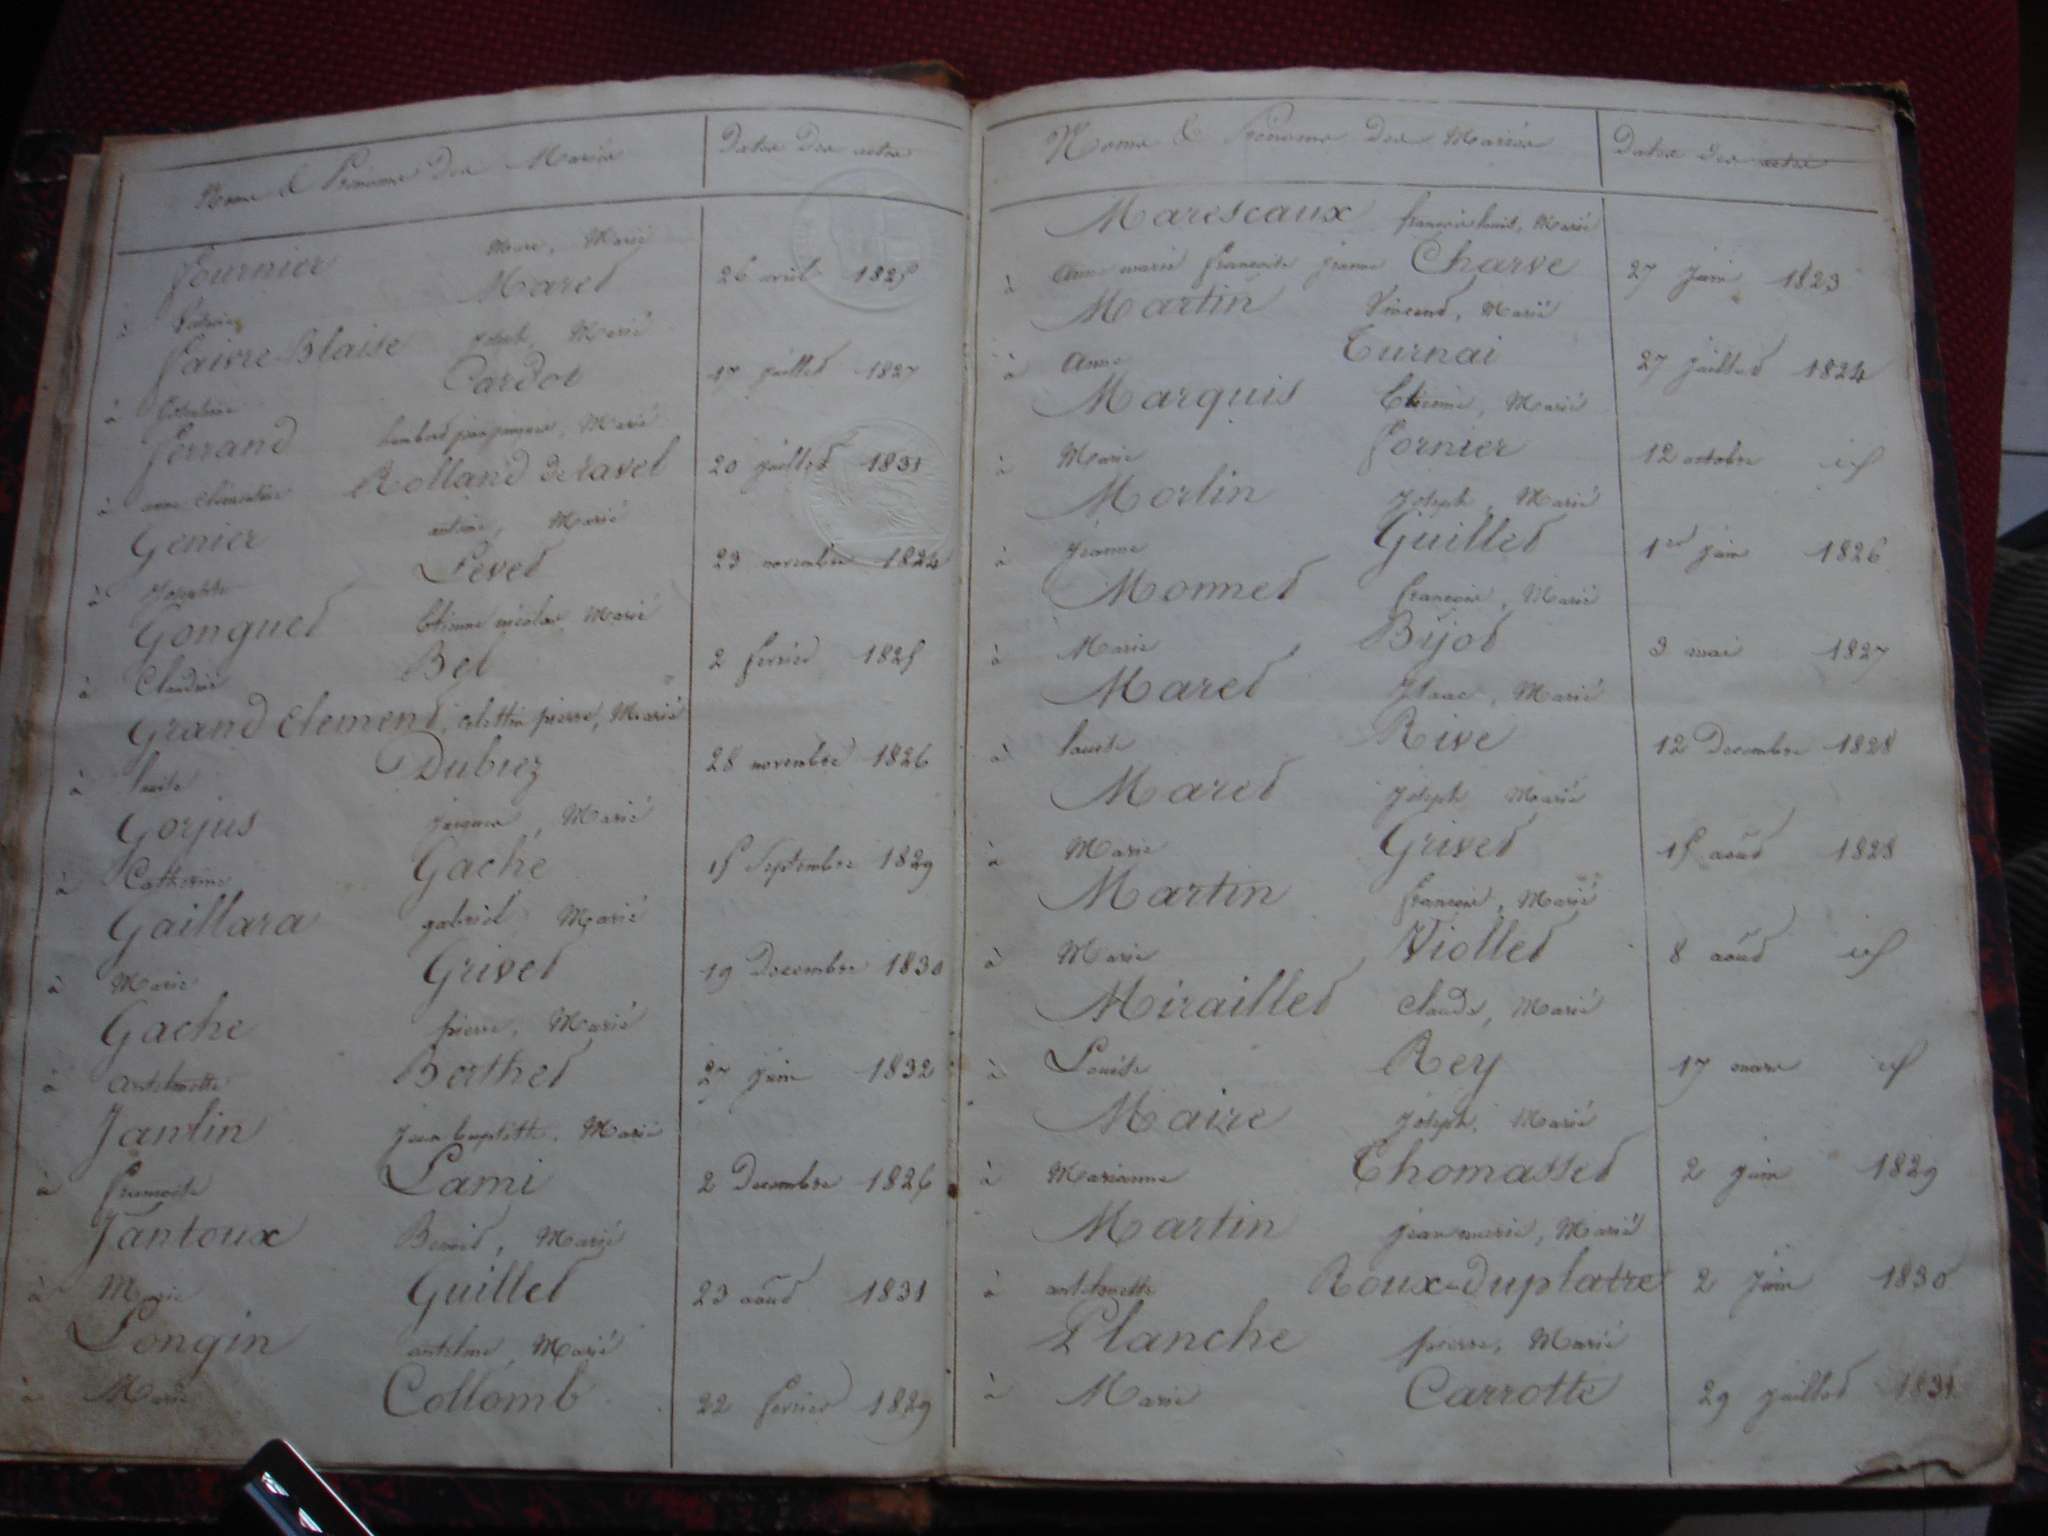 Noms & Prénoms des Mariés Dates des actes
Fournier Marc, Marié
à Maret 26 avril 1825
Faivre-Blaise Joseph, Marié
à Cardot 17 juillet 1827
Ferrand jean jacques, Marié
à anne clémentine Rolland de ravel 20 juillet 1831
Génier antoine, Marié
à Josephte Levet 23 novembre 1824
Gonguet Etienne nicolas, Marié
à Claudine Bel 2 fevrier 1825
Grand Clement, célestin pierre, Marié
à louise Dubiez 28 novembre 1826
Gorjus jacques, Marié
à Catherine Gache 15 Septembre 1829
Gaillara gabriel, Marié
à Marie Grivet 19 Decembre 1830
Gache pierre, Marié
à antelmette Berthet 27 juin 1832
Jantin jean baptiste, Marié
à francoise Lami 2 Decembre 1826
Jantoux Benoit, Marié
à Marie Guillet 23 août 1831
Longin antelme, Marié
à Marie Collomb 22 fevrier 1829
Noms & Prénoms des Mariés Dates des actes
Marescaux françois louis, Marié
à anne marie francoise jeanne Charve 27 juin 1823
Martin Vincent, Marié
à anne Turnai 27 juillet 1824
Marquis Etienne, Marié
à Marie Fornier 12 octobre id
Morlin Joseph, Marié
à jeanne Guillet 1er juin 1826
Monnet francois, Marié
à Marie Bijot 3 mai 1827
Maret Isaac, Marié
à louise Rive 12 Decembre 1828
Maret Joseph Marié
à Marie Grivet 15 août 1828
Martin francois, Marié
à Marie Viollet 8 août id
Miraillet claude, Marié
à Louise Rey 17 mars id
Maire Joseph, Marié
à Marianne Thomasset 2 juin 1829
Martin jean marie, Marié
à antelmette Roux-duplatre 2 juin 1830
Planche pierre, Marié
à Marie Carrotte 29 juillet 1831